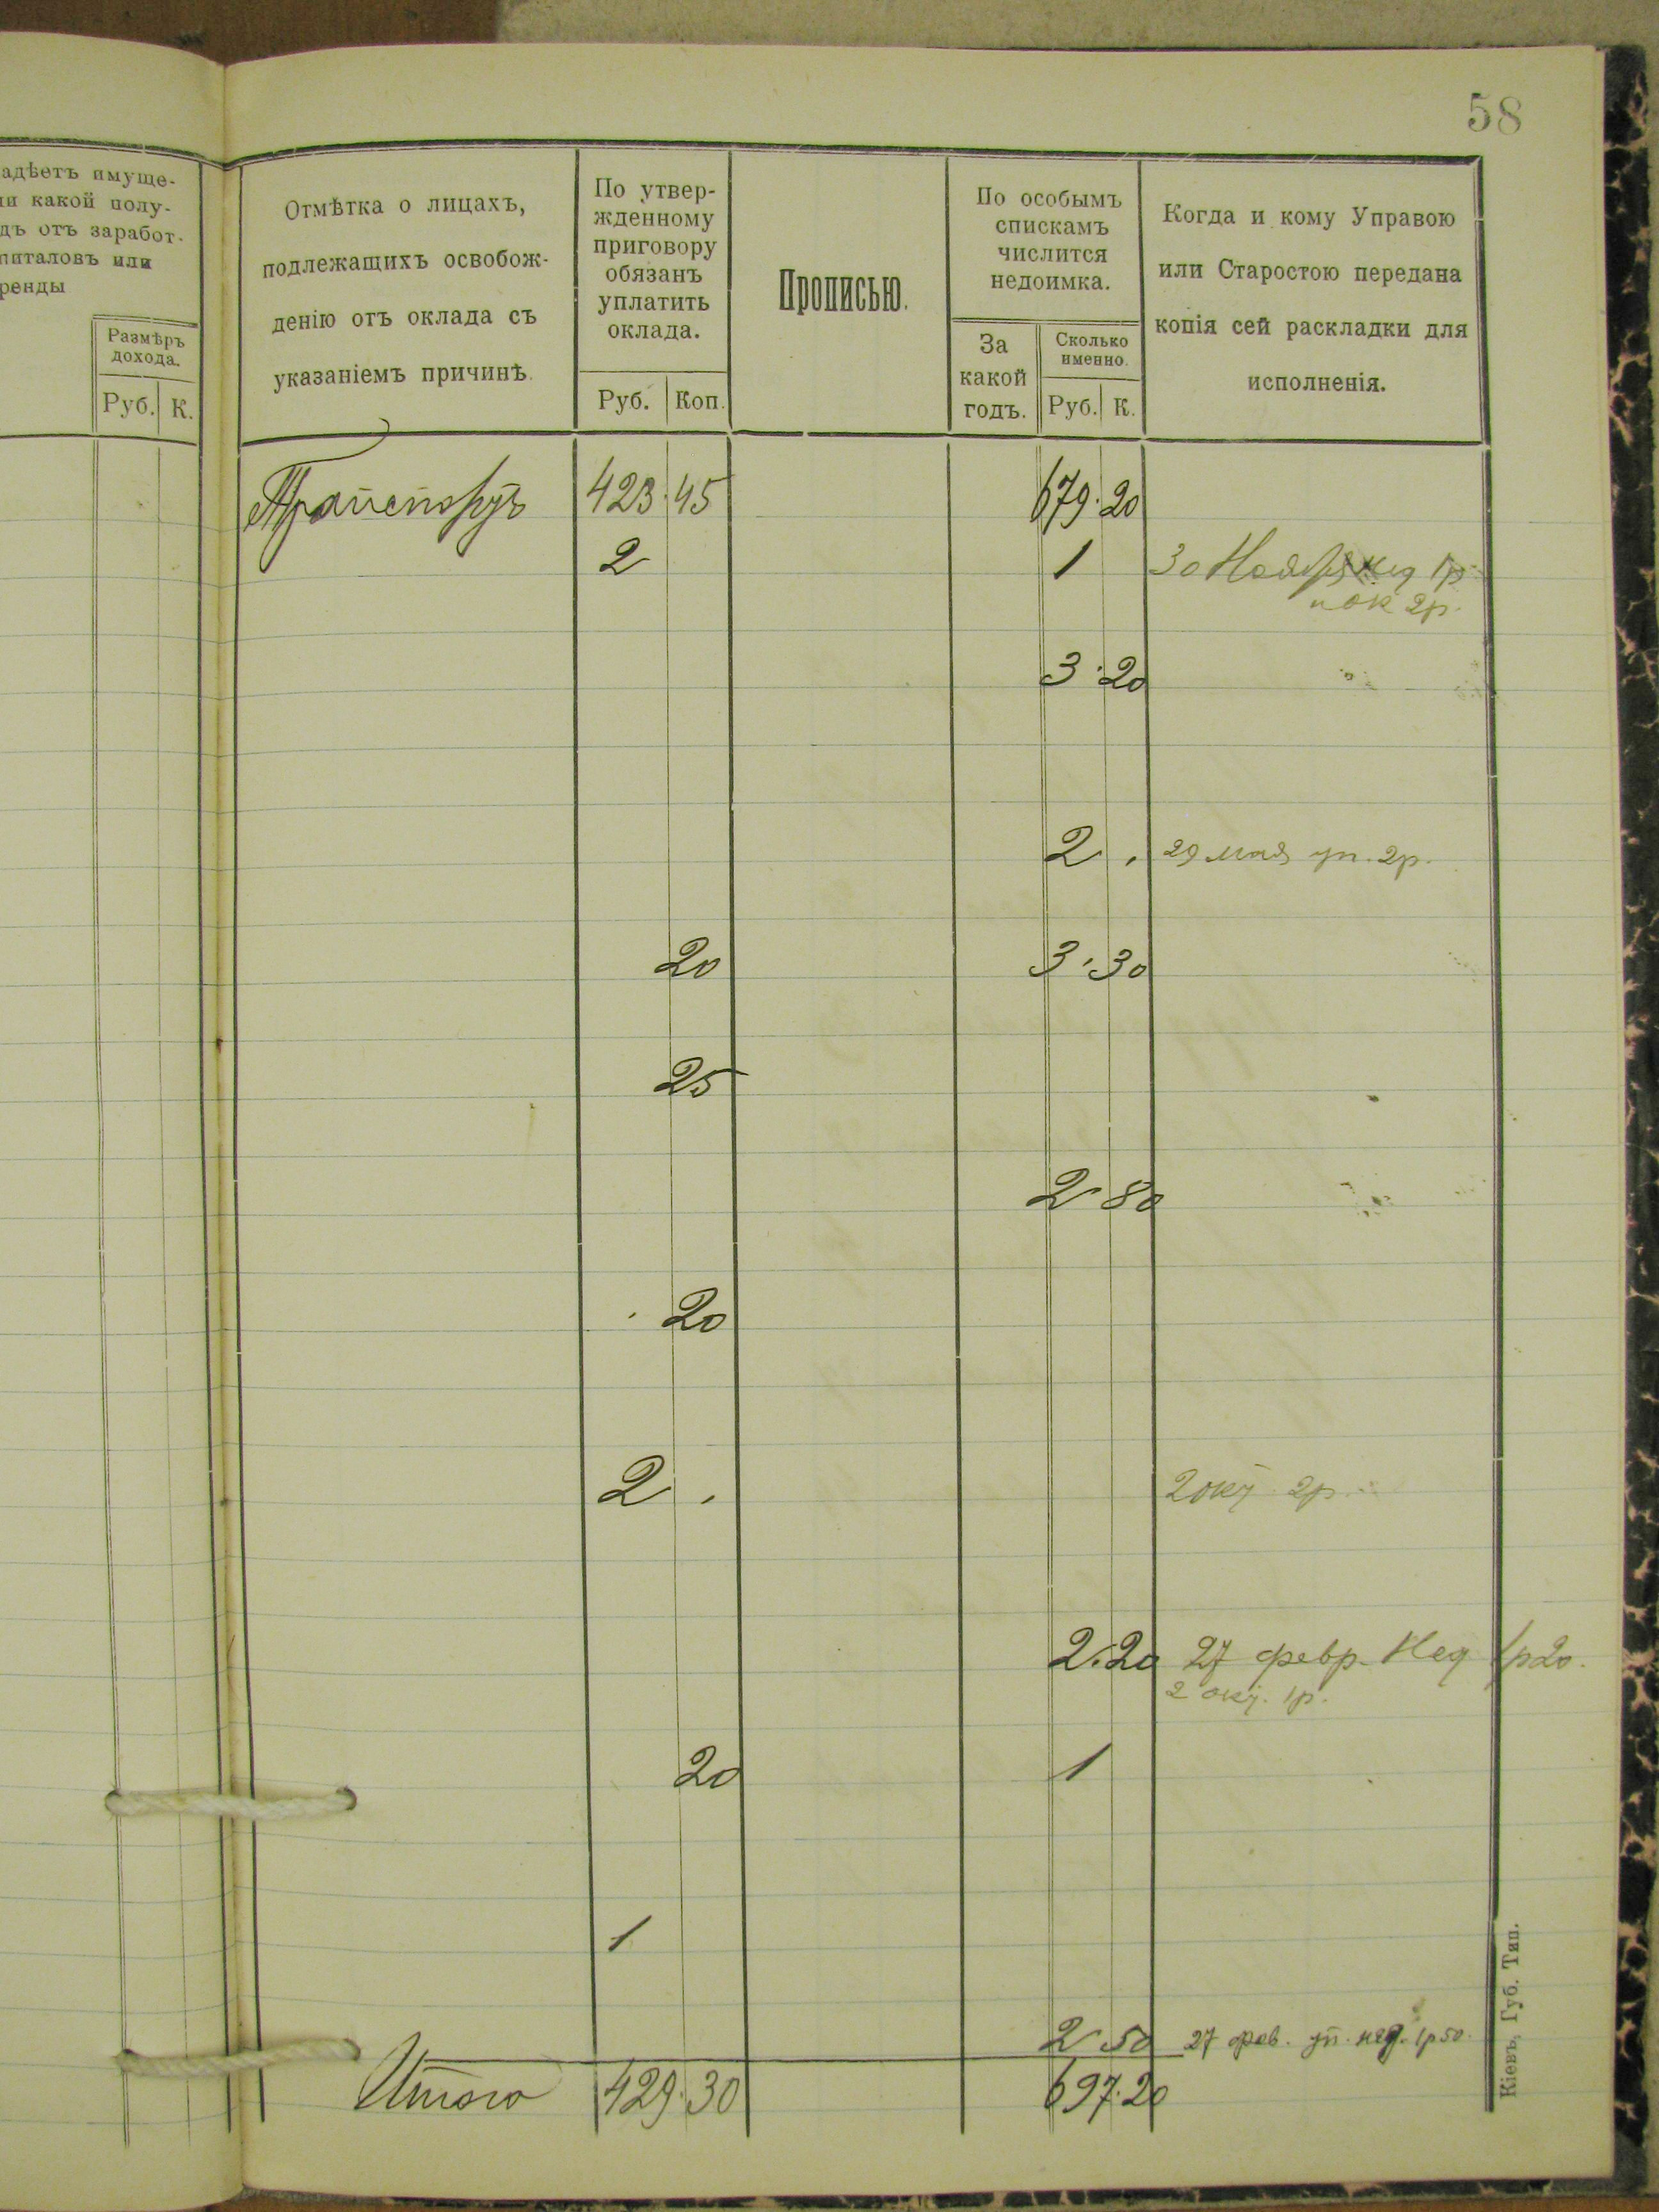 58
адѣетъ имуще-
ли какой полу-
дъ отъ заработ-
питаловъ или
ренды
Размѣръ
дохода.
Руб. К.
Отмѣтка о лицахъ,
подлежащихъ освобож-
денію отъ оклада съ
указаніемъ причинѣ.
По утвер-
жденному
приговору
обязанъ
уплатить
оклада.
Руб. Коп.
Прописью.
По особымъ
спискамъ
числится
недоимка.
За
какой
годъ.
Сколько
именно.
Руб. К.
Когда и кому Управою
или Старостою передана
копія сей раскладки для
исполненія.
Транспортъ 423.45 679.20
2 1 30 Ноября нед 1р
и ок 2р.
3.20
2. 29 мая уп. 2р.
20 3.30
25
2 80
20
2. 2 окт 2р.
2.20 27 февр. Нед 1р20.
2 окт. 1р.
20 1
1
2 50 27 фев. уп. нед. 1р50.
Итого 429.30 697.20
Кіевъ, Губ. Тип.